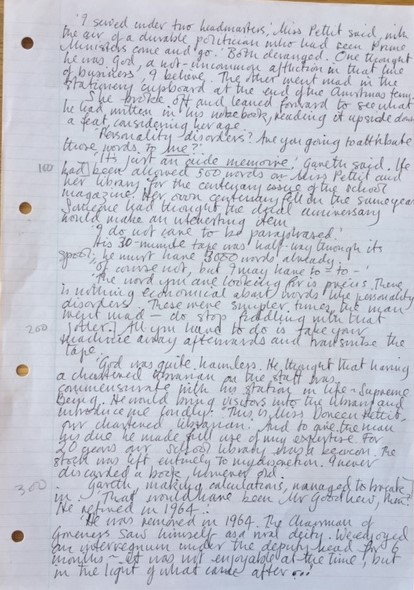 'I served under two headmasters,' Miss Pettit said, with
the air of a durable politician who had seen Prime
Ministers come and go. 'Both deranged. One thought
he was God, a not-uncommon affliction in that line
of business, I believe. The other went mad in the
stationery cupboard at the end of the Christmas term.'
She broke off and leaned forward to see what
he had written in his notebook, reading it upside down
a feat, considering her age.
'Personality disorders? Are you going to attribute
those words to me?'
'It's just an aide memoire,' Gareth said. He
100
had been allowed 500 words on Miss Pettit and
her library for the centenary issue of the school
magazine. Her own centenary fell on the same year
Someone had thought the dual anniversary
would make an interesting item.
'I do not care to be paraphrased.'
His 30-minute tape was half-way through its
spool; he must have 3000 words already.
'Of course not, but I may have to - to -'
'The word you are looking for is précis. There
is nothing economical about words like personality
disorders. These were simpler times, the man
went mad - do stop fiddling with that
200
jotter. All you have to do is take your
machine away afterwards and transcribe the
tape.
'God was quite harmless. He thought that having
a chartered librarian on the staff was
commensurate with his station in life - Supreme
Being. He would bring visitors into the library and
introduce me fondly: This is Miss Doreen Pettit,
our chartered librarian. And to give the man
his due, he made full use of my expertise. For
20 years our school library was a beacon. The
stock was left entirely to my discretion. I never
discarded a book, however old.'
300
Gareth, making calculations, managed to break
in. 'That would have been Mr Goodhew, then?
He retired in 1964.'
'He was removed in 1964. The Chairman of
Governors saw himself as a rival deity. We enjoyed
an interregnum under the deputy head for 6
months - it was not enjoyable at the time, but
in the light of what came after ...'